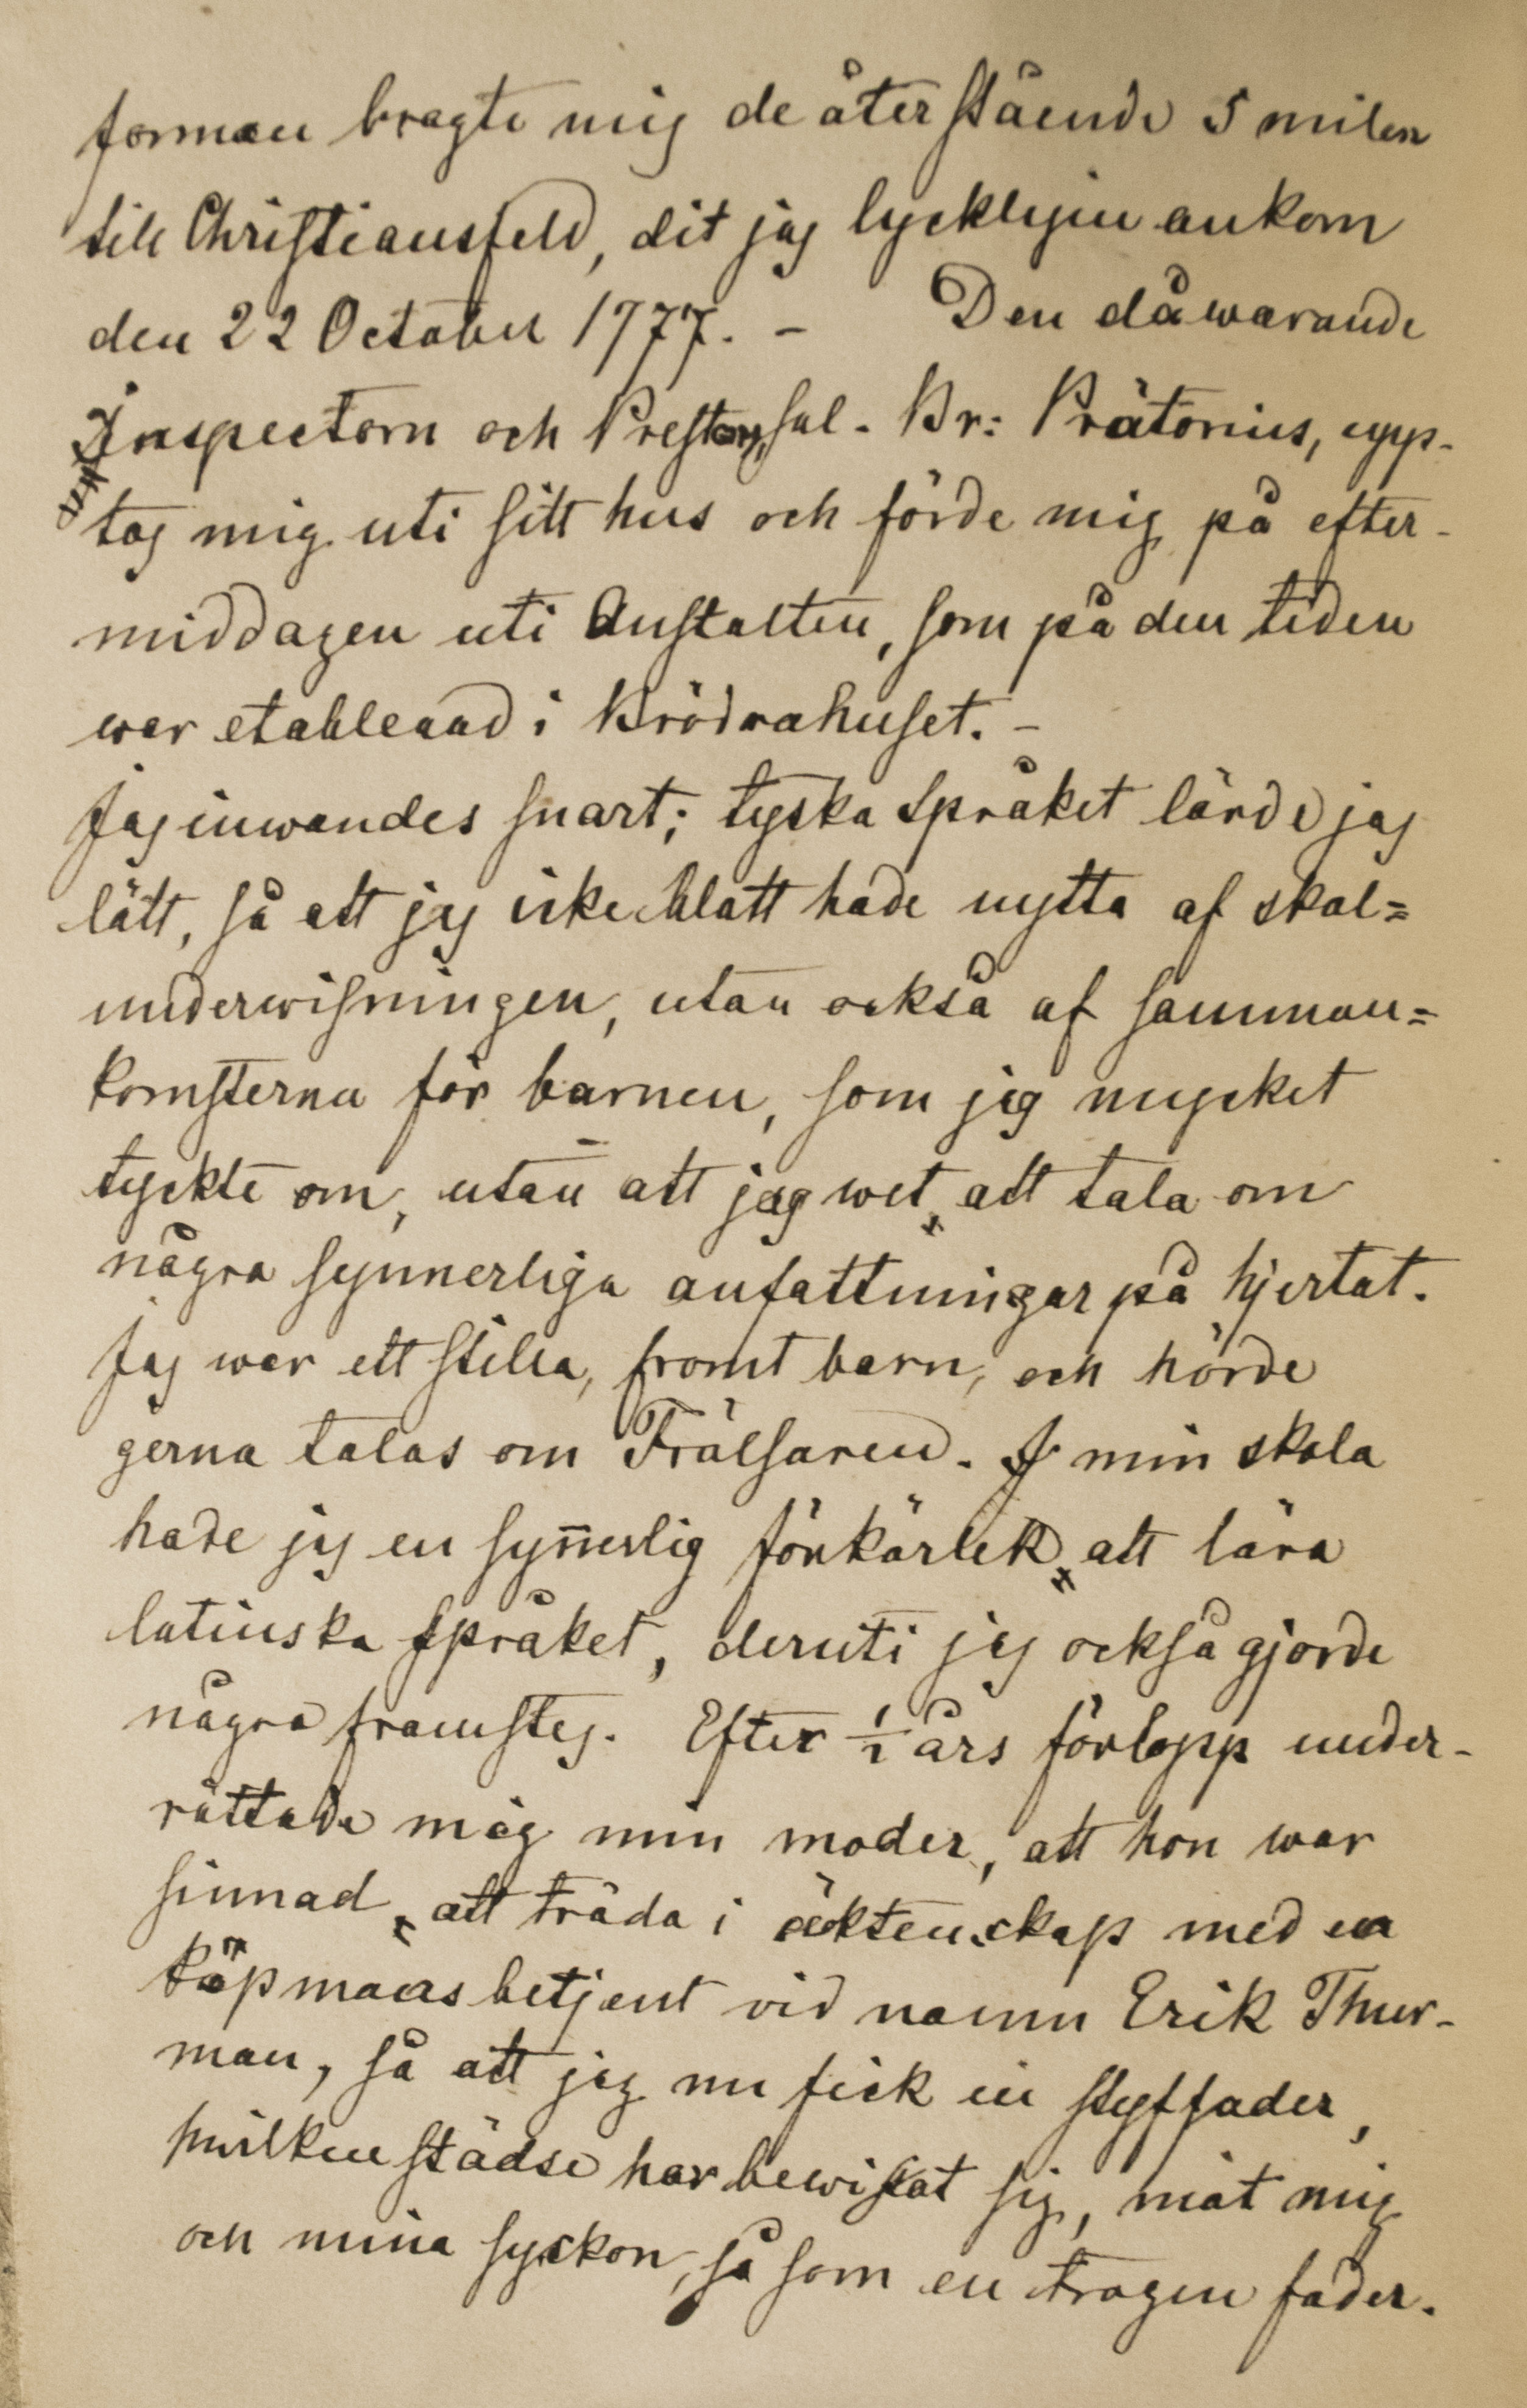 forman bragte mig de återstående 5 milen
till Christiansfeld, dit jag lyckligen ankom
den 22 October 1777. - Den dåwarande
Inspectorn och Presten, sal. Br: Prätorius, upp-
tog mig uti sitt hus och förde mig på efter-
middagen uti Anstalten, som på den tiden
war etablerad i Brödrahuset. -
Jag inwandes snart; tyska språket lärde jag
lätt, så att jag icke blott hade nytta af skol=
underwisningen, utan också af samman=
komsterna för barnen, som jag mycket
tyckte om, utan att jag wet att tala om
några synnerliga anfattningar på hjertat.
Jag war ett stilla, fromt barn, och hörde
gerna talas om Frälsaren. I min skola
hade jag en syn̄erlig förkärlek att lära
latinska språket, deruti jag också gjorde
några framsteg. Efter ½ års förlopp under-
rättade mig min moder, att hon war
sinnad att träda i äktenskap med en
köpmansbetjent vid namn Erik Thur-
man, så att jag nu fick en styffader,
hvilken städse har bewisat sig, mot mig
och mina syskon, så som en trogen fader.